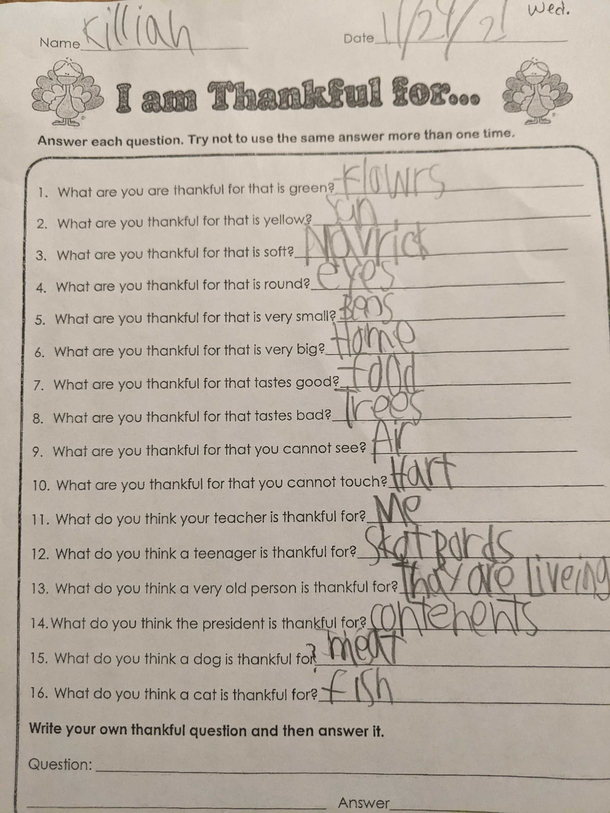 Wed.
Name Killian Date 11/24/21
I am Thankful for...
Answer each question. Try not to use the same answer more than one time.
1. What are you are thankful for that is green? Flowrs
2. What are you thankful for that is yellow? Sun
3. What are you thankful for that is soft? Navrick
4. What are you thankful for that is round? eyes
5. What are you thankful for that is very small? Bens
6. What are you thankful for that is very big? Home
7. What are you thankful for that tastes good? food
8. What are you thankful for that tastes bad? Trees
9. What are you thankful for that you cannot see? Air
10. What are you thankful for that you cannot touch? Hart
11. What do you think your teacher is thankful for? Me
12. What do you think a teenager is thankful for? Skat Bords
13. What do you think a very old person is thankful for? Thay are liveing
14. What do you think the president is thankful for? contenents
15. What do you think a dog is thankful for? meat
16. What do you think a cat is thankful for? fish
Write your own thankful question and then answer it.
Question:
Answer